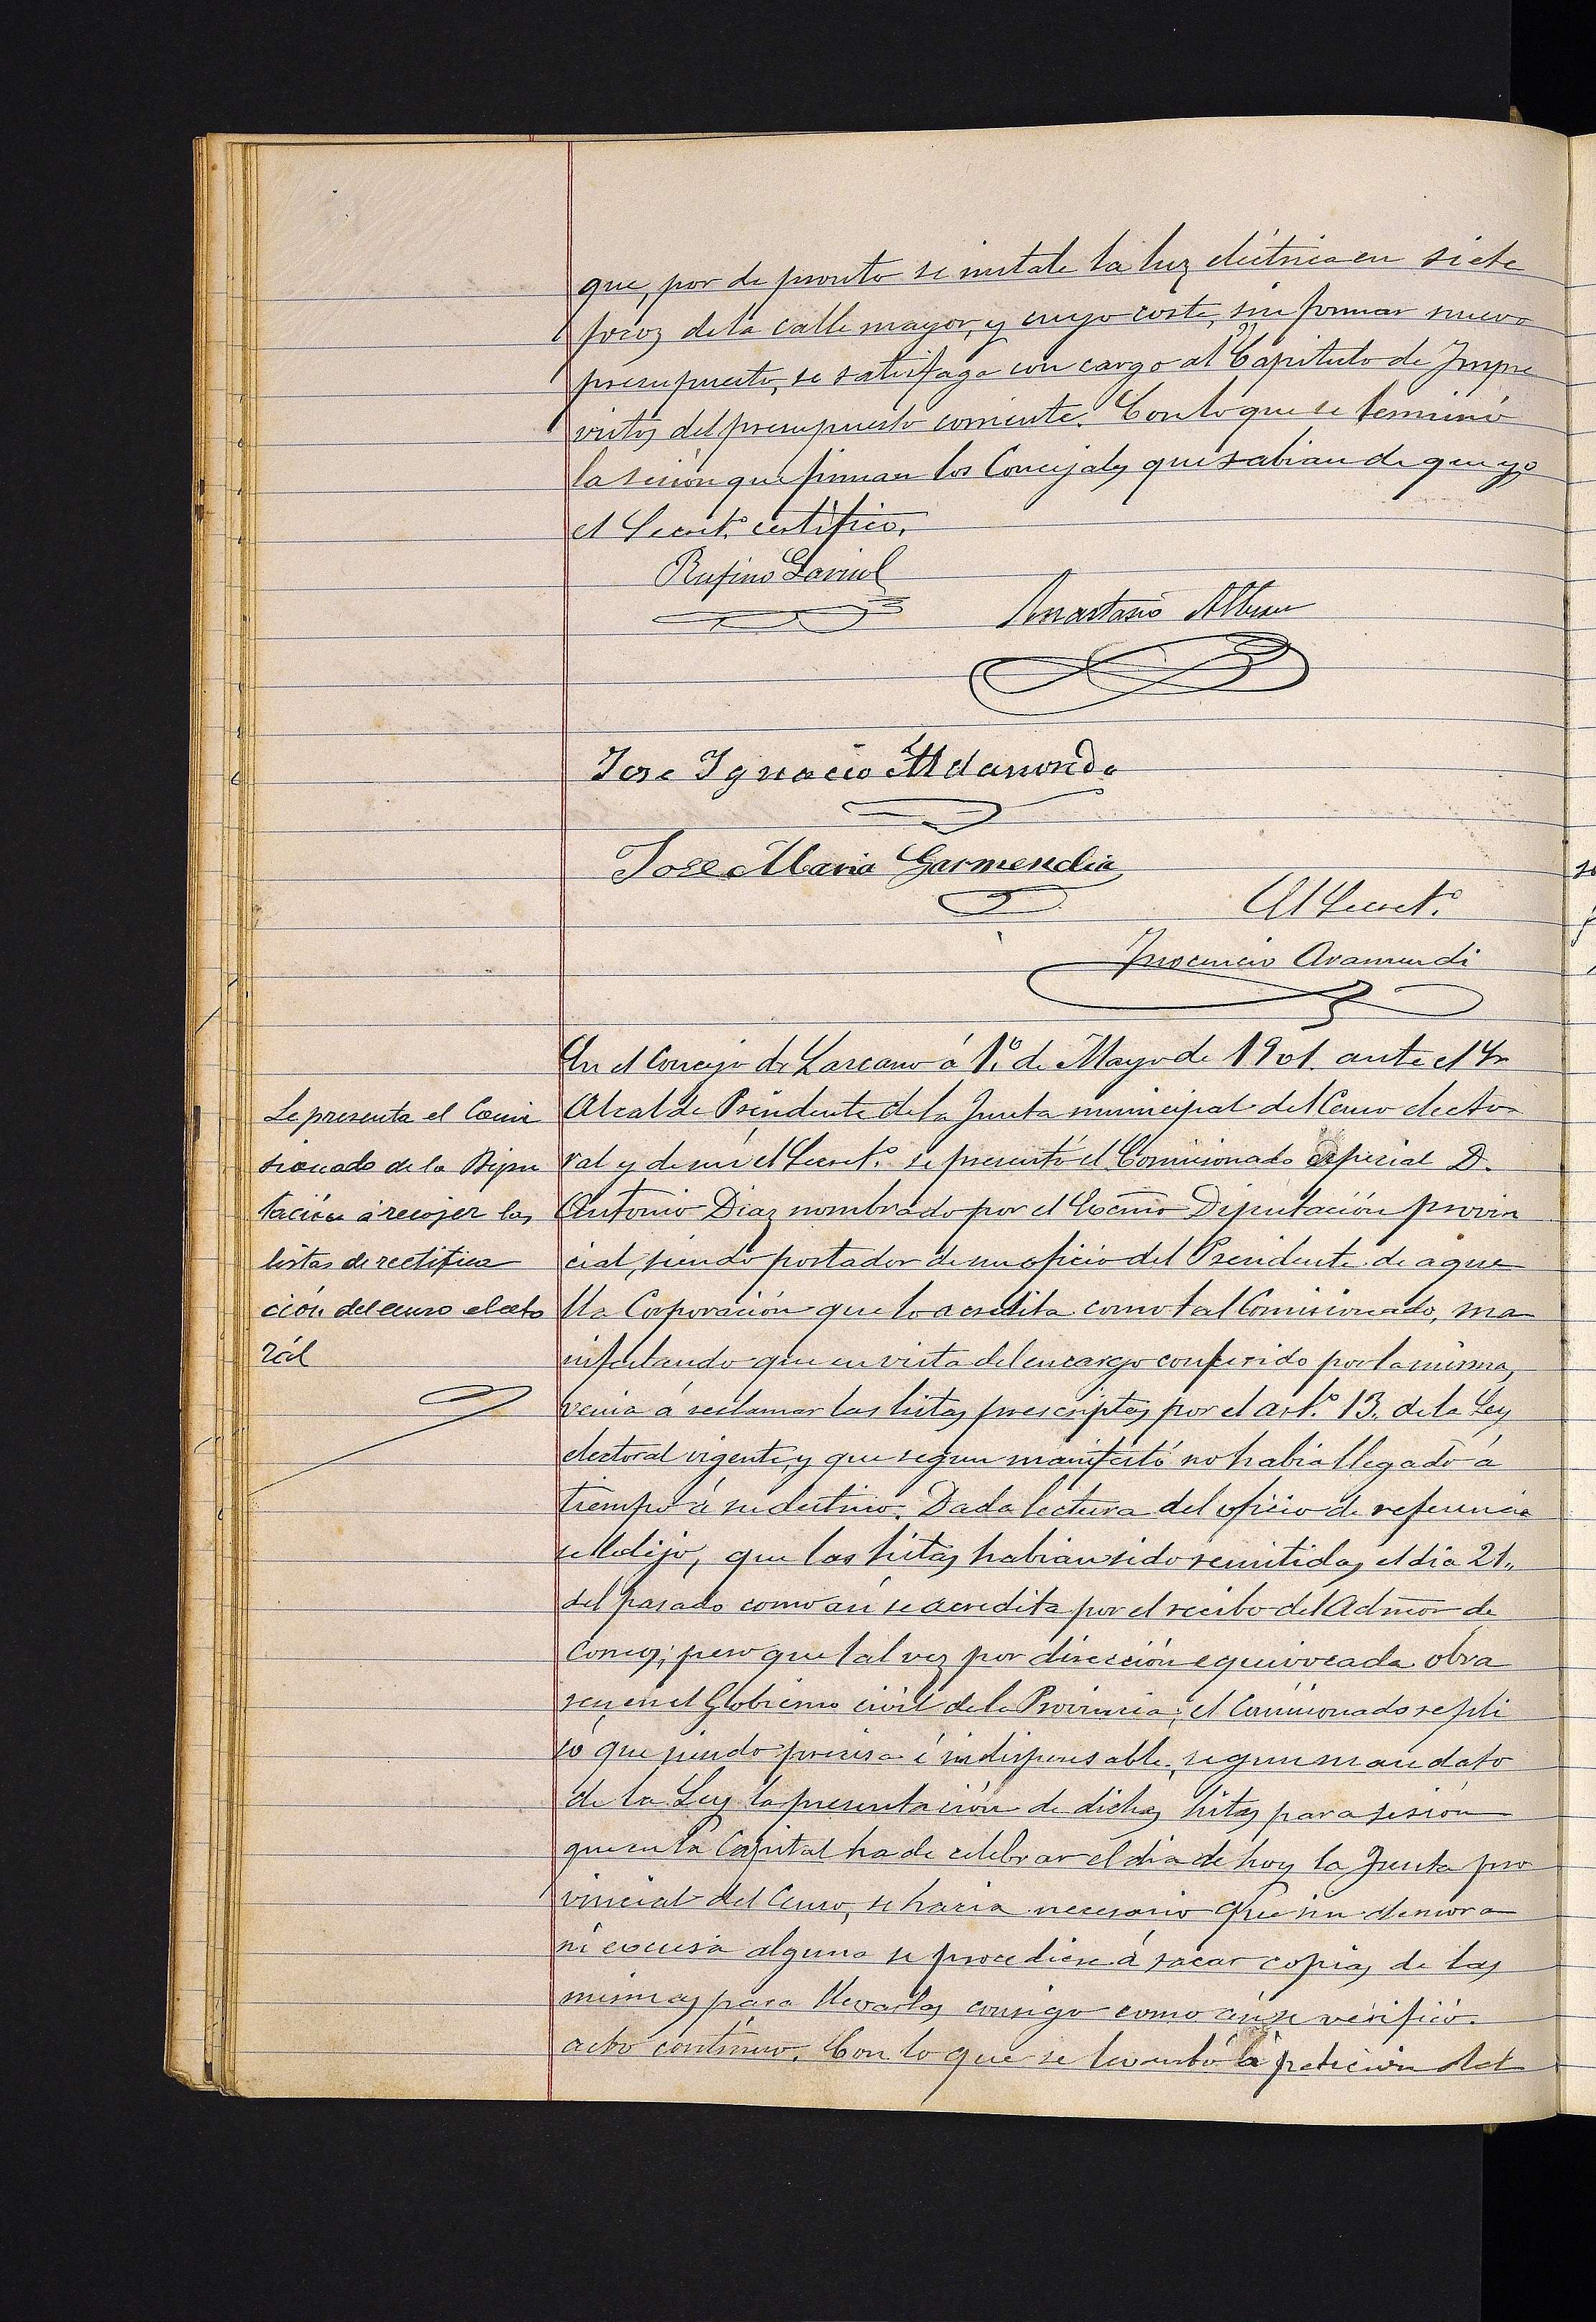 que, por de pronto se instale la luz eléctrica en siete
focos de la calle mayor, y cuyo coste, sin formar nuevo
presupuesto, se satisfaga con cargo al Capitulo de Impre
vistos del presupuesto corriente. Con lo que se terminó
la sesión que firman los Concejales que sabian de que yo
el Secret.º certifico.
Rufino
Anastasio
Jose Ignacio Aldasoro
Jose Maria Garmendia
El Secret.º
Inocencio Aramendi
En el Concejo de Lazcano á 1.º de Mayo de 1901. ante el Sr
Alcalde Presidente de la Junta municipal del Censo electo
ral y de mi el Secret.º se presentó el Comisionado especial D.
Antonio Diaz nombrado por el Excmo Diputación provin
cial, siendo portador de un oficio del Presidente de aque
lla Corporación que lo acredita como tal Comisionado, ma
nifestando que en vista del encargo conferido por la misma,
venia á reclamar las listas prescriptas por el art.º 13. de la Ley
electoral vigente, y que segun manifestó no habia llegado á
tiempo á su destino. Dada lectura del oficio de referencia
se le dijo, que las listas habian sido remitidas el dia 21.
del pasado como asi se acredita por el recibo del Admor de
Correos; pero que tal vez por dirección equivocada obra
sen en el Gobierno civil de la Provincia; el Comisionado repli
có que siendo precisa é indispensable, segun mandato
de la Ley la presentación de dichas listas para sesión
que en la Capital ha de celebrar el dia de hoy la Junta pro
vincial del Censo, se haria necesario que sin demora
ni excusa alguna se procediese á sacar copias de las
mismas para llevarlas consigo como asi se verificó
acto continuo. Con lo que se levantó á petición del
Se presenta el Comi
sionado de la Dipu
tación á recojer las
listas de rectifica
ción del censo electo
rál